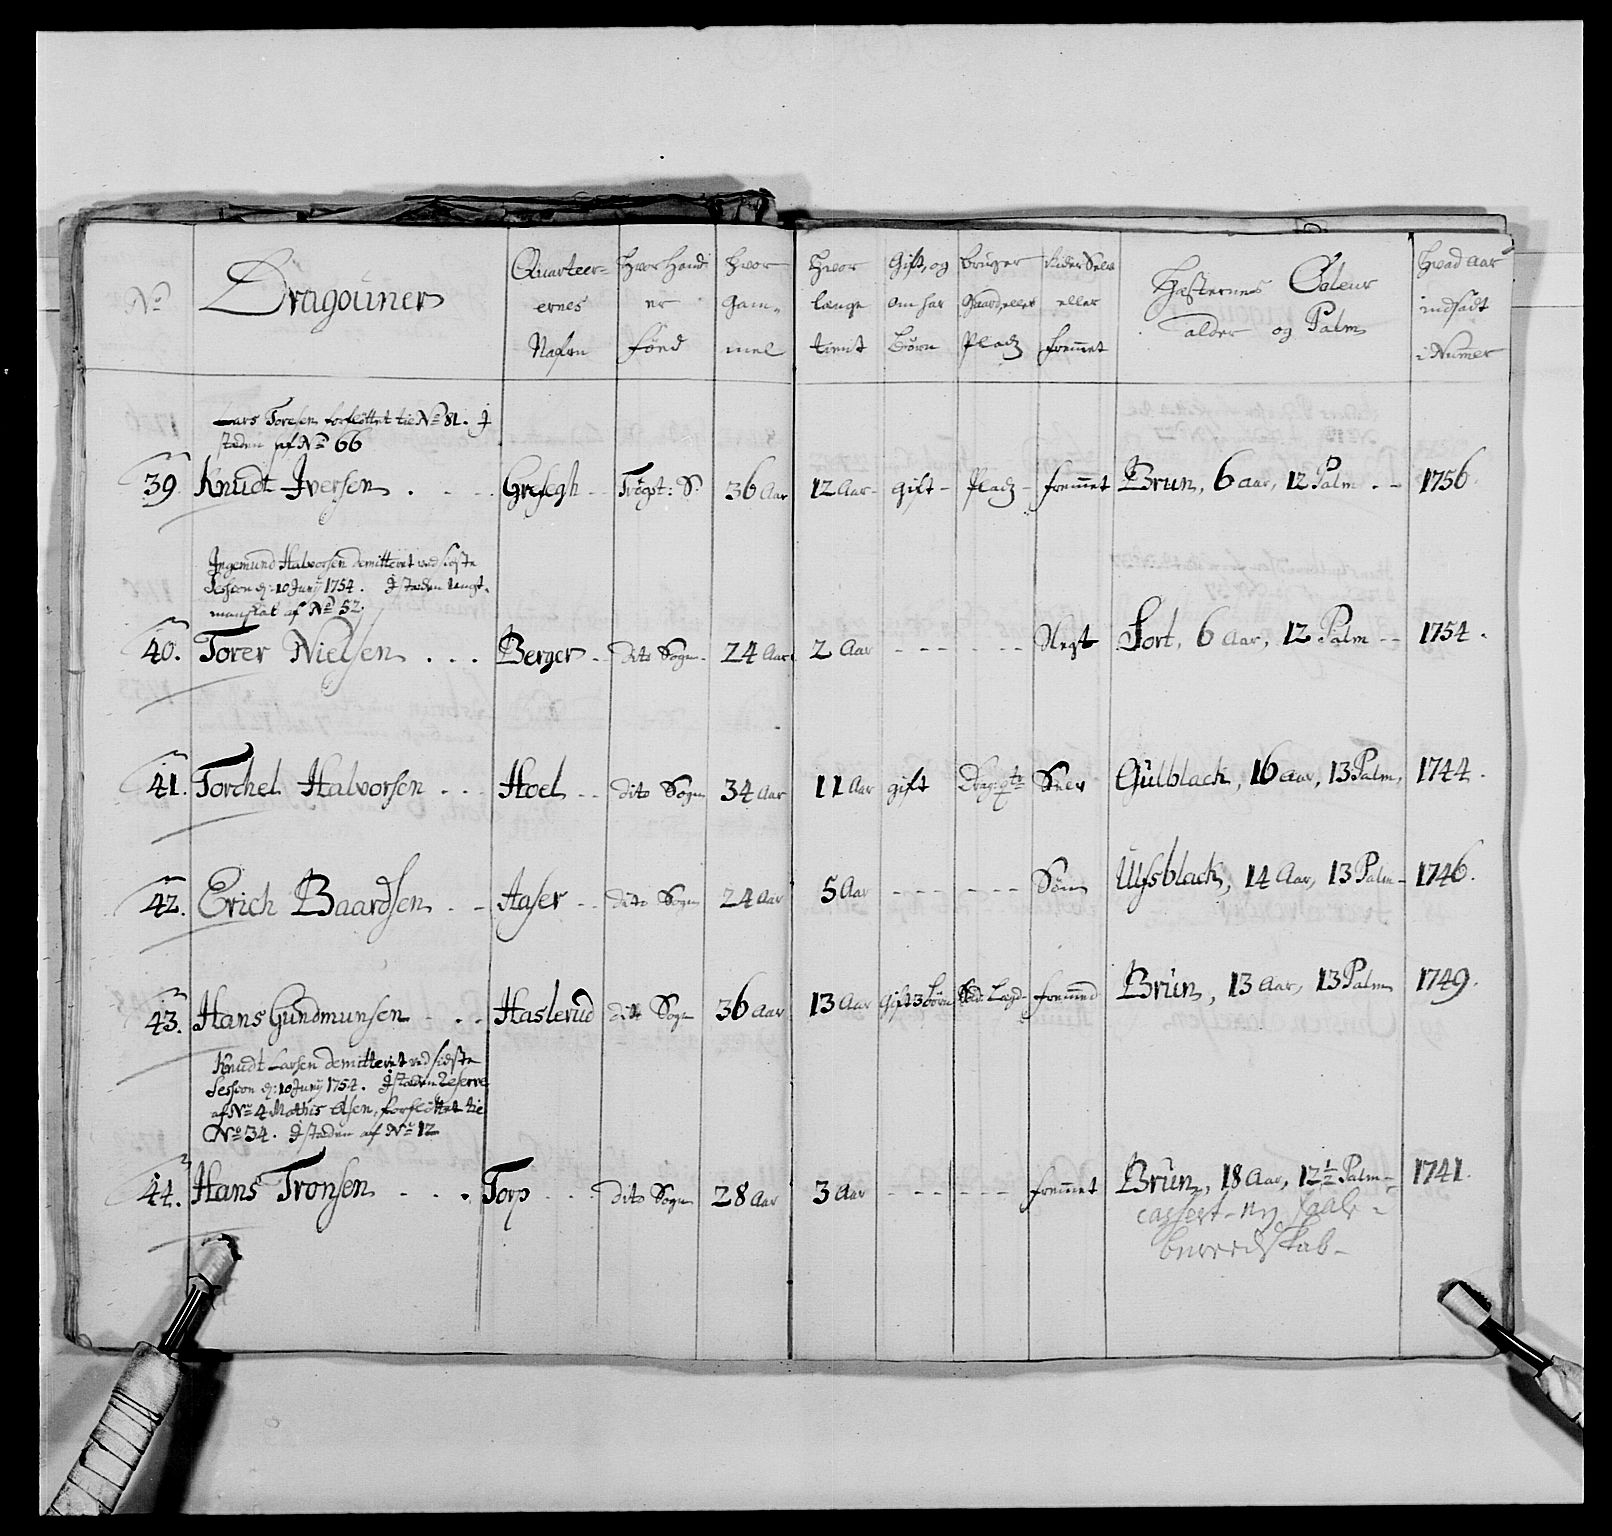 No Dragouner Quarteer= ernes Nafn Hvor Hand er föed Hvor Gam= mel Hvor længe tient Gift, og om har Börn Bruger Gaard, eller Pladz Rider Selv eller fremmet Hæsternes Coleur alder og Palm Hvad aar indsadt i Numer
Lars Toresen forflöttet til No 81. I
stæden af No 66
39. Knudt Iversen Grefegh Trögst: S: 36 Aar 12 Aar gift Pladz fremmet Brun, 6 aar, 12 Palm 1756.
Ingemund Halvorsen demitteret ved siste
Session d: 10 Juny 1754. I stæden langt=
manskab af No 52.
40. Torer Nielsen Berger dito Sogn 24 Aar 2 Aar Slegt Sort, 6 Aar, 12 Palm 1754.
41. Torchel Halvorsen Hoel dito Sogn 34 Aar 11 Aar gift Selv Gulblack, 16 aar, 13 Palm, 1744.
42. Erich Baardsen Aaser dito Sogn 24 Aar 5 Aar Sön Ulfsblach, 14 Aar, 13 Palm 1746.
43. Hans Gundmunsen Haslerud dito Sogn 36 Aar 13 Aar Gift 3 Börn fremmed Brun, 13 Aar, 13 Palm 1749.
Knudt Larsen demitteret ved sidste
Session d: 10 Juny 1754. I stæden Reserve
af No 4 Mathis Olsen, forflöttet til
No 34. I stæden af No 12
44. Hans Tronsen Torp dito Sogn 28 Aar 3 Aar fremmet Brun, 18 Aar, 12 1/2 Palm 1741.
cassert - ny